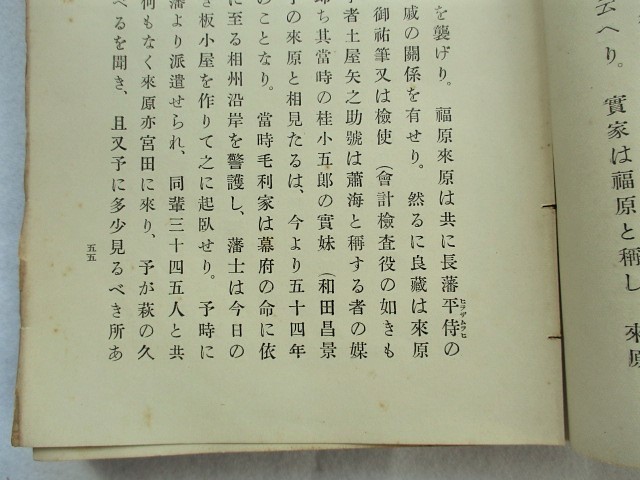 云へり。實家は福原と稱し、來原
を襲げり。福原來原は共に長藩平侍の
戚の關係を有せり。然るに良藏は來原
御祐筆又は檢使（會計檢査役の如きも
者土屋矢之助號は蕭海と稱する者の媒
ち其當時の桂小五郎の實妹（和田昌景
の來原と相見たるは、今より五十四年
のことなり。當時毛利家は幕府の命に依
に至る相州沿岸を警護し、藩士は今日の
き板小屋を作りて之に起臥せり。予時に
藩より派遣せられ、同輩三十四五人と共
何もなく來原亦宮田に來り、予が萩の久
べるを聞き、且又予に多少見るべき所あ
五五